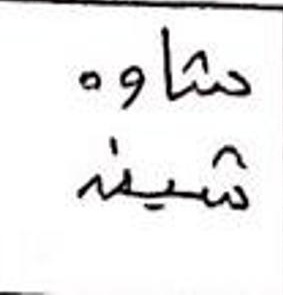 شاوه
شیفه